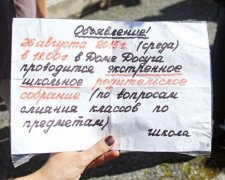 Объявление!
26 августа 2015г (среда)
в 18.00 г в Доме Досуга
проводится экстренное
школьное родительское
собрание (по вопросам
слияния классов по
предметам)
школа